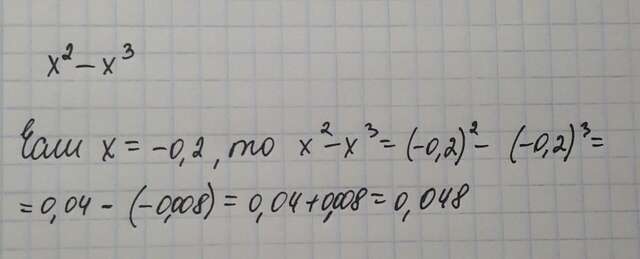 x² – x³
Если x = –0,2, то x² – x³ = (–0,2)² – (–0,2)³ =
= 0,04 – (–0,008) = 0,04 + 0,008 = 0,048